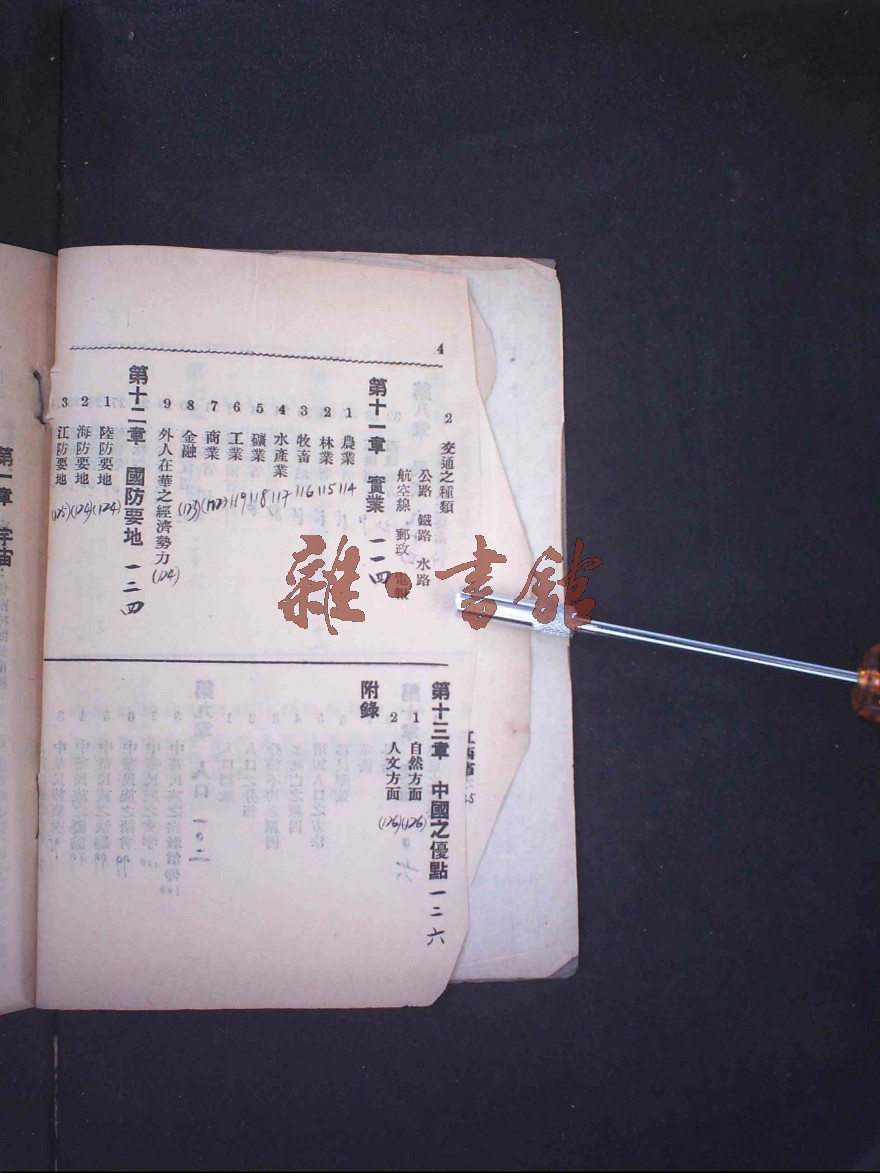 4
2 交通之種類
公路 鐵路 水路
航空線 郵政 電報
第十一章 實業 一一四
1 農業 114
2 林業 115
3 牧畜 116
4 水產業 117
5 礦業 118
6 工業 119
7 商業 (122)
8 金融 (123)
9 外人在華之經濟勢力 (124)
第十二章 國防要地 一二四
1 陸防要地 (124)
2 海防要地 (124)
3 江防要地 (125)
第十三章 中國之優點 一二六
1 自然方面 (126)
2 人文方面 (126)
附錄
第一章 宇宙
雜·書館